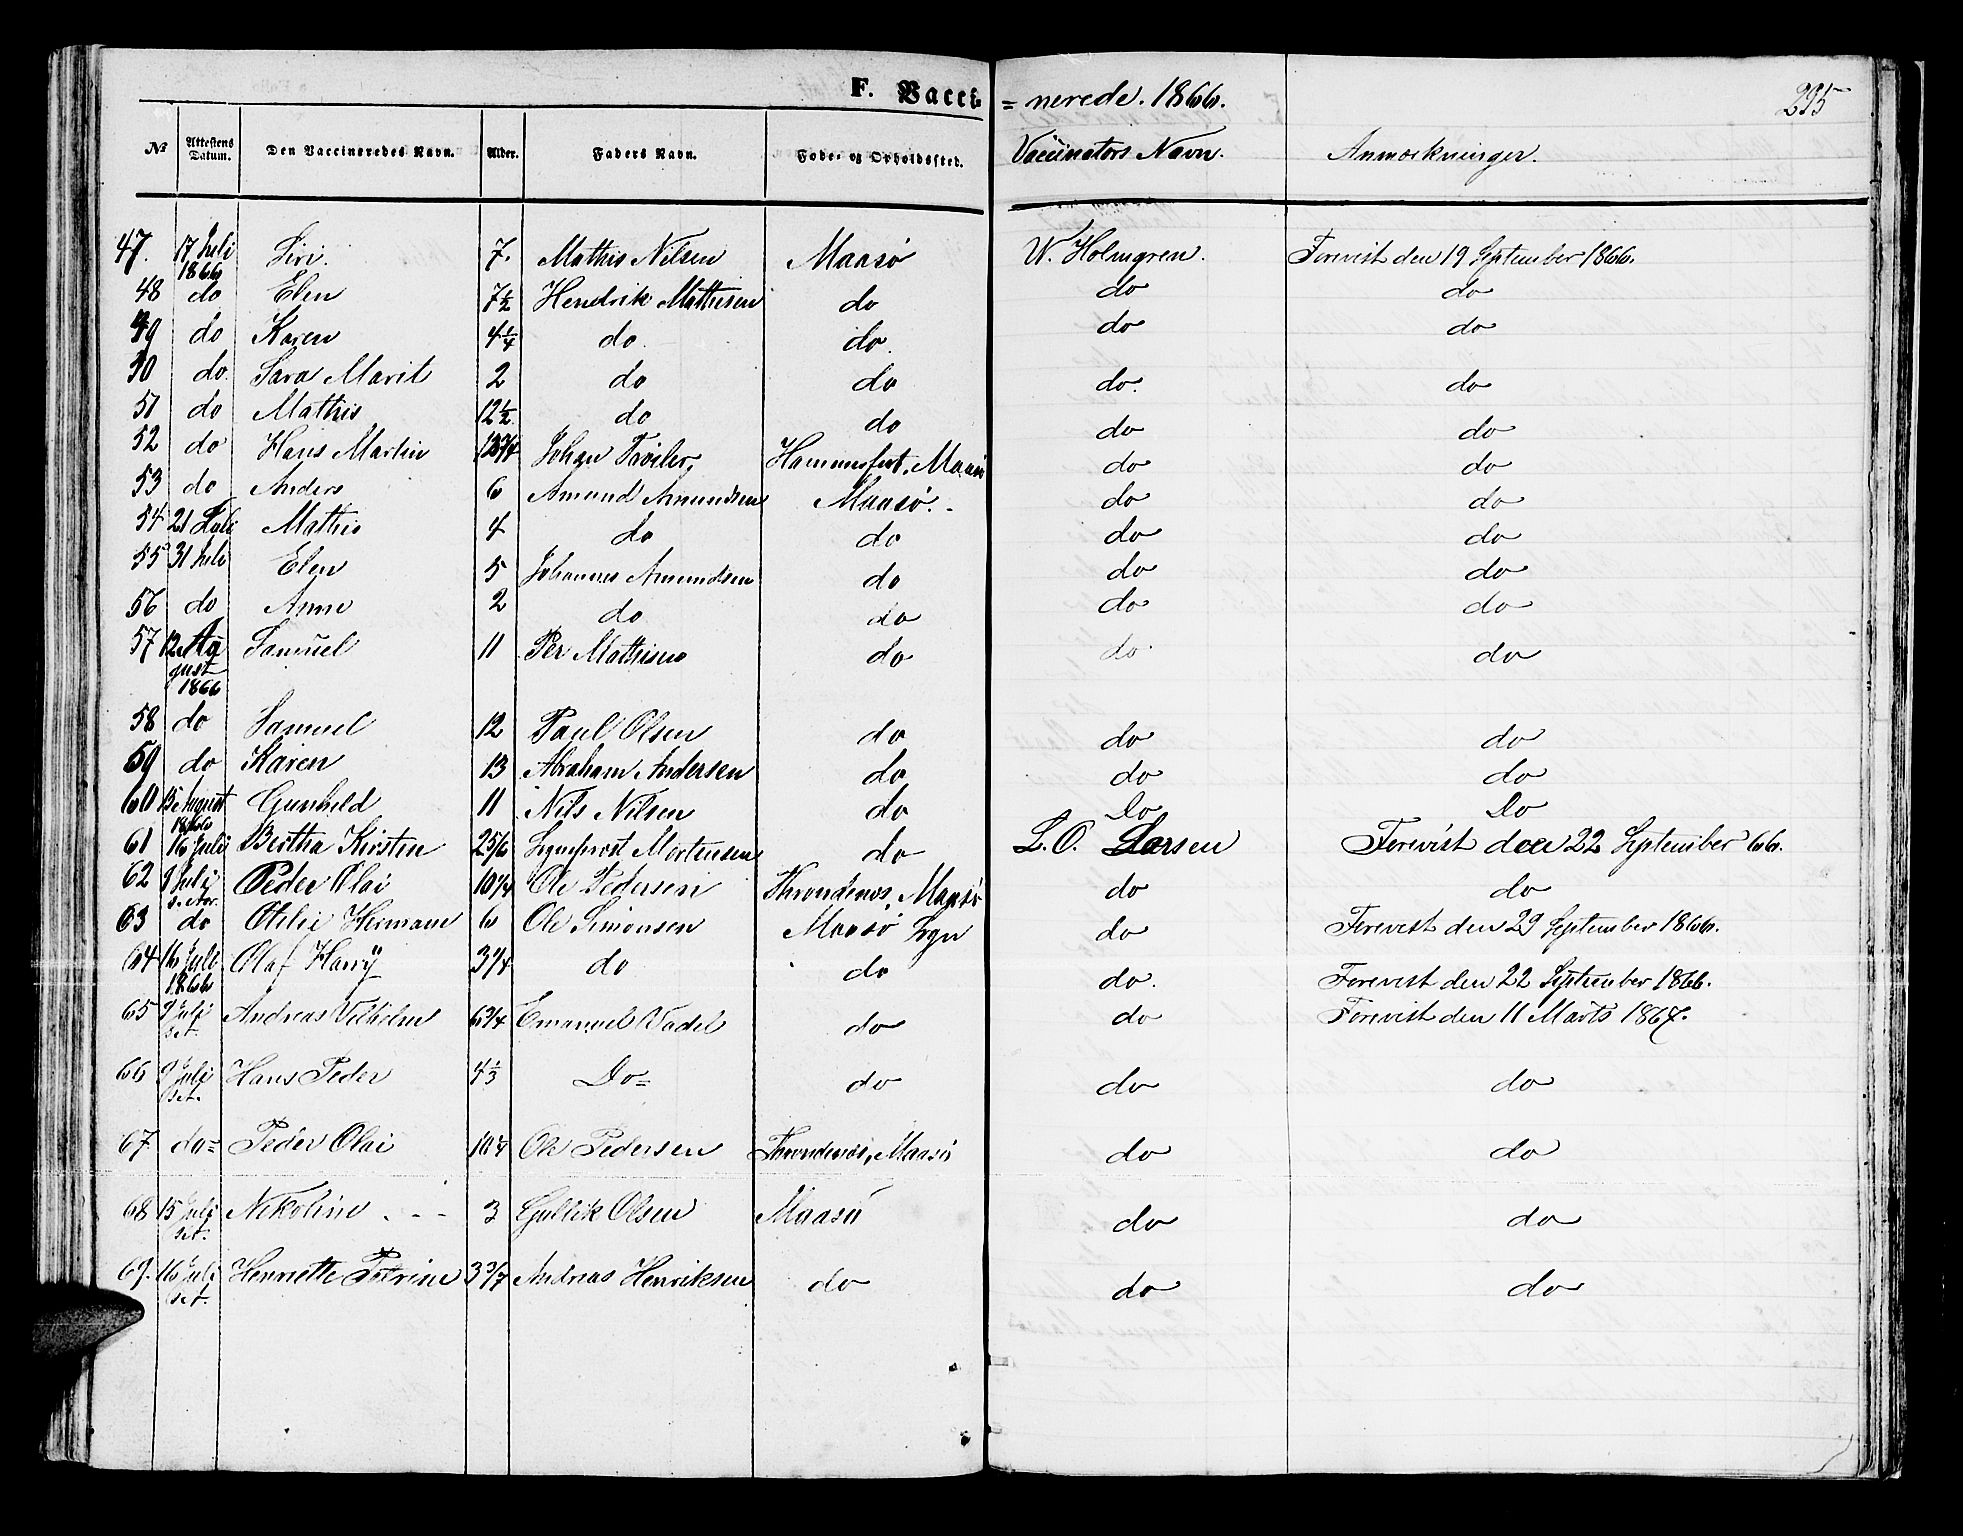 F. Vacci = nerede. 1866. 295
No Attestens Datum. Den Vaccineredes Navn. Alder. Faders Navn. Føde- og Opholdssted. Vaccinators Navn. Anmærkninger.
47. 17 Juli 1866 Siri. 7. Mathis Nilsen Maasø W. Holmgren. Forevist den 19 September 1866.
48 do Elen 7½ Hendrik Mathisen do do do
49 do Karen 4¼ do do. do do
50 do Sara Marit 2 do do do. do
51 do Mathis 12½ do do do do
52 do Hans Martin Johan Hammerfest, Maasø do do
53 do Anders 6 Amund Amundsen Maasø. do do
54 21 Juli Mathis 4 do do do do
55 31 Juli Elen 5 Johannes Amundsen do do do
56 do Anne 2 do do do do
57 12 August 1866 Samuel 11 Per Mathisen do do. do
58 do Samuel 12 Paul Olsen do do do
59 do Karen 13 Abraham Andersen do do do
60 15 August 1866 Gunhild 11 Nils Nilsen do Do Do
61 16 Juli Bertha Kirsten 2 5/6 Mortensen do L. O. Larsen Forevist den 22 September 66.
62 9 Juli s. Aar. Peder Olai 10 1/4 Ole Pedersen Throndenæs, Maasø do do
63 do Otilie Hermane 6 Ole Simonsen Maasø Sogn do Forevist den 29 September 1866.
64 16 Juli 1866 Olaf Harry 3 1/4 do do do. Forevist den 22 September 1866.
65 9 Juli Andreas Vilhelm 6 3/4 Emanuel Wadel do do Forevist den 11 Marts 1867.
66 9 Juli Hans Peder 4⅓ Do= do do do
67 do= Peder Olai 10 1/4 Ole Pedersen Throndenæs, Maasø do do
68 15 Juli Nikoline . - - 3 Gullik Olsen Maasø do do
69. 16 Juli Henriette Petrine 3 3/7 Andreas Henriksen do do do